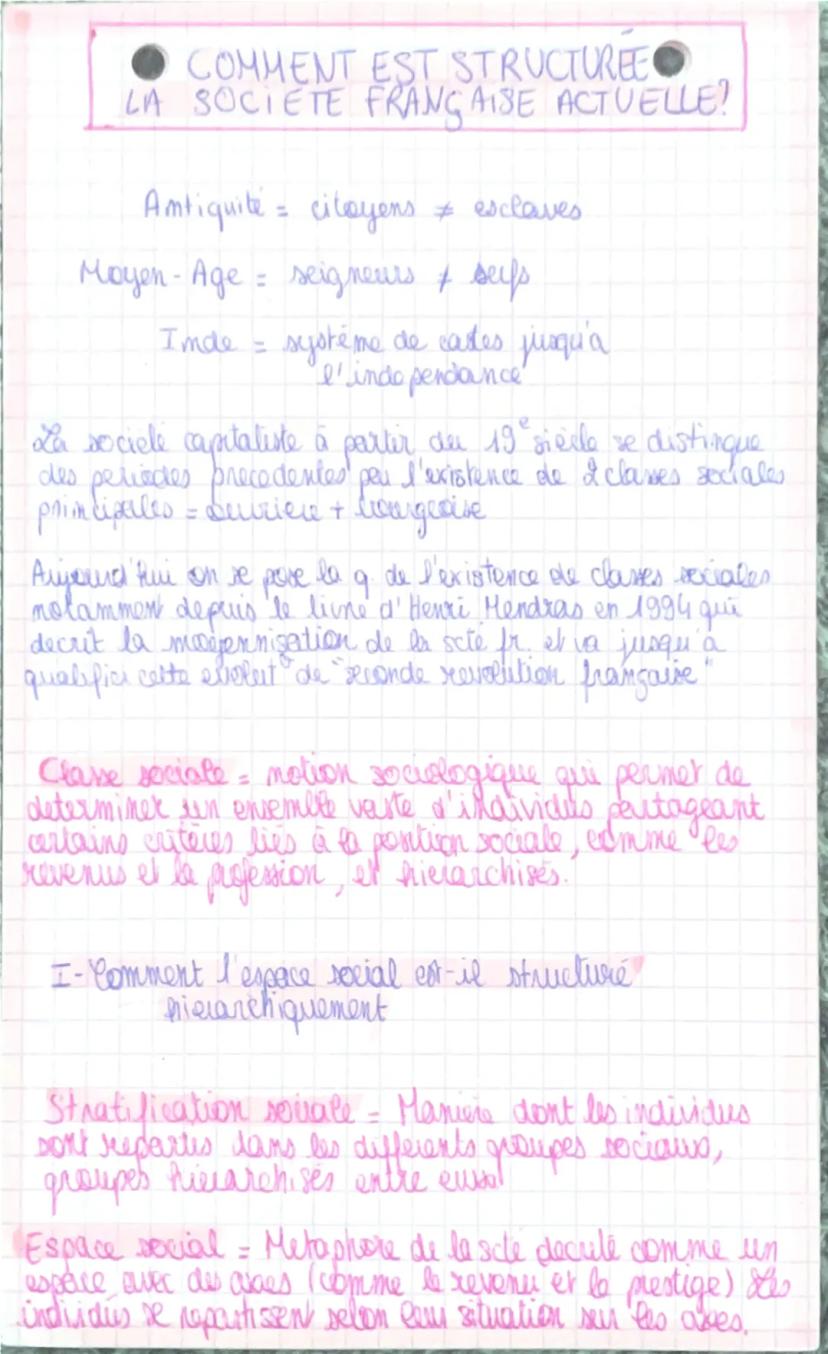 COMMENT EST STRUCTURÉE
LA SOCIETE FRANÇAISE ACTUELLE?
Antiquité = citoyens ≠ esclaves
Moyen-Age = seigneurs ≠ serfs
Inde = système de castes jusqu'à
l'independance
La société capitaliste à partir du 19e siècle se distingue
des periodes precedentes par l'existence de 2 classes sociales
principales = ouvriere + bourgeoise
Aujourd'hui on se pose la q. de l'existence de classes sociales
notamment depuis le livre d'Henri Mendras en 1994 qui
decrit la moyennisation de la scté fr. et va jusqu'à
qualifier cette évolut° de "seconde revolution française"
Classe sociale = notion sociologique qui permet de
determiner un ensemble vaste d'individus partageant
certains critères liés à la position sociale, comme les
revenus et la profession, et hierarchisés.
I- Comment l'espace social est-il structuré
hierarchiquement
Stratification sociale = Maniere dont les individus
sont repartis dans les differents groupes sociaux,
groupes hierarchisés entre eux
Espace social = Metaphore de la scté decrite comme un
espace avec des axes (comme le revenu et le prestige) Les
individus se repartissent selon leur situation sur les axes.